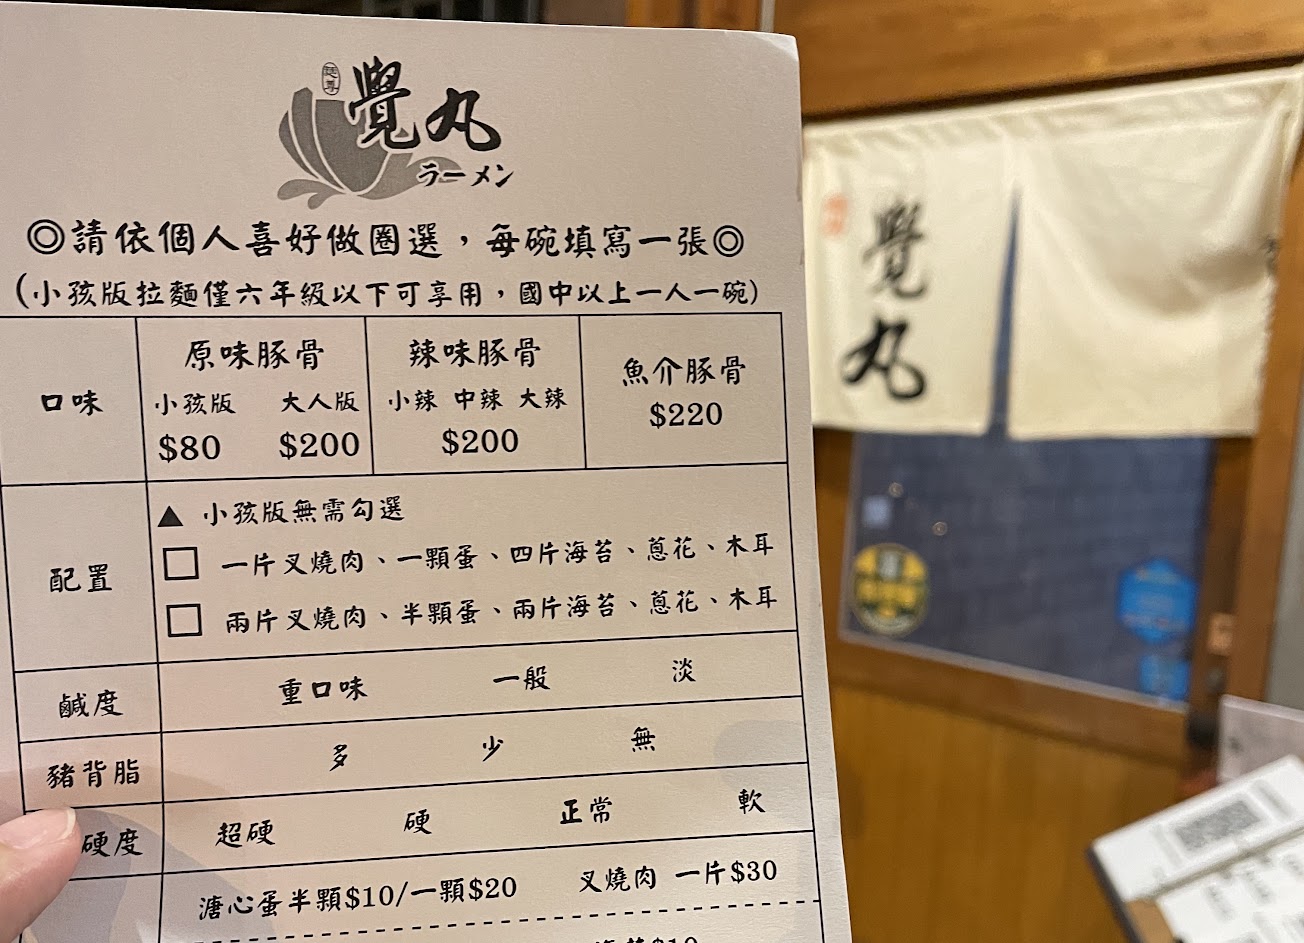 覺丸
ラーメン
◎請依個人喜好做圈選，每碗填寫一張◎
(小孩版拉麵僅六年級以下可享用，國中以上一人一碗)
口味
原味豚骨
小孩版 大人版
$80 $200
辣味豚骨
小辣 中辣 大辣
$200
魚介豚骨
$220
配置
▲ 小孩版無需勾選
□ 一片叉燒肉、一顆蛋、四片海苔、蔥花、木耳
□ 兩片叉燒肉、半顆蛋、兩片海苔、蔥花、木耳
鹹度 重口味 一般 淡
豬背脂 多 少 無
硬度 超硬 硬 正常 軟
溏心蛋半顆$10/一顆$20 叉燒肉 一片$30
覺丸